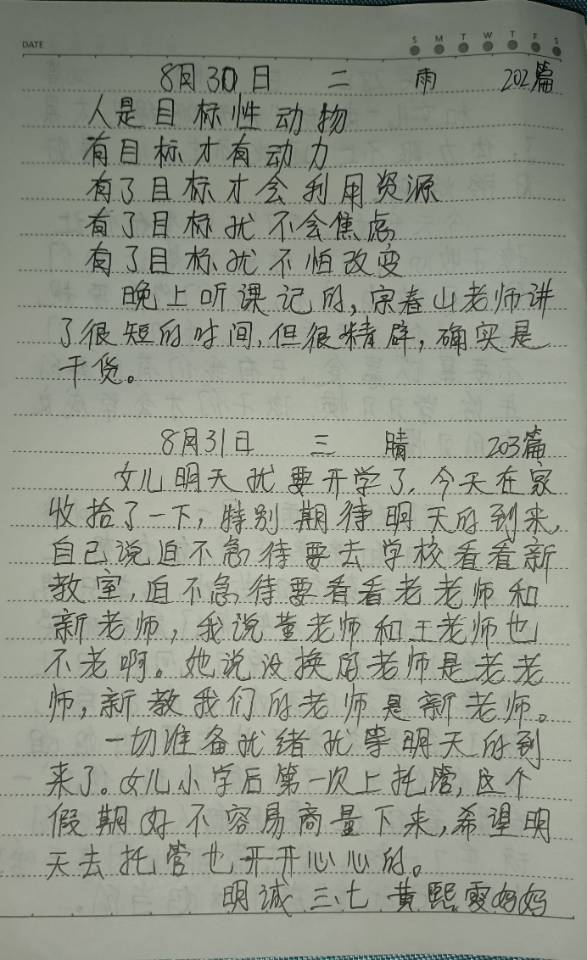 DATE
S M T W T F S
8月30日 二 雨 202篇
人是目标性动物
有目标才有动力
有了目标才会利用资源
有了目标就不会焦虑
有了目标就不怕改变
晚上听课记的,宗春山老师讲
了很短的时间,但很精辟,确实是
干货。
8月31日 三 晴 203篇
女儿明天就要开学了,今天在家
收拾了一下,特别期待明天的到来,
自己说迫不急待要去学校看看新
教室,迫不急待要看看老老师和
新老师,我说董老师和王老师也
不老啊。她说没换的老师是老老
师,新教我们的老师是新老师。
一切准备就绪就等明天的到
来了。女儿小学后第一次上托管,这个
假期好不容易商量下来,希望明
天去托管也开开心心的。
明诚三.七 黄熙雯妈妈